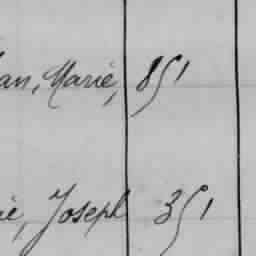 an, Marie, 851
ie, Joseph 351